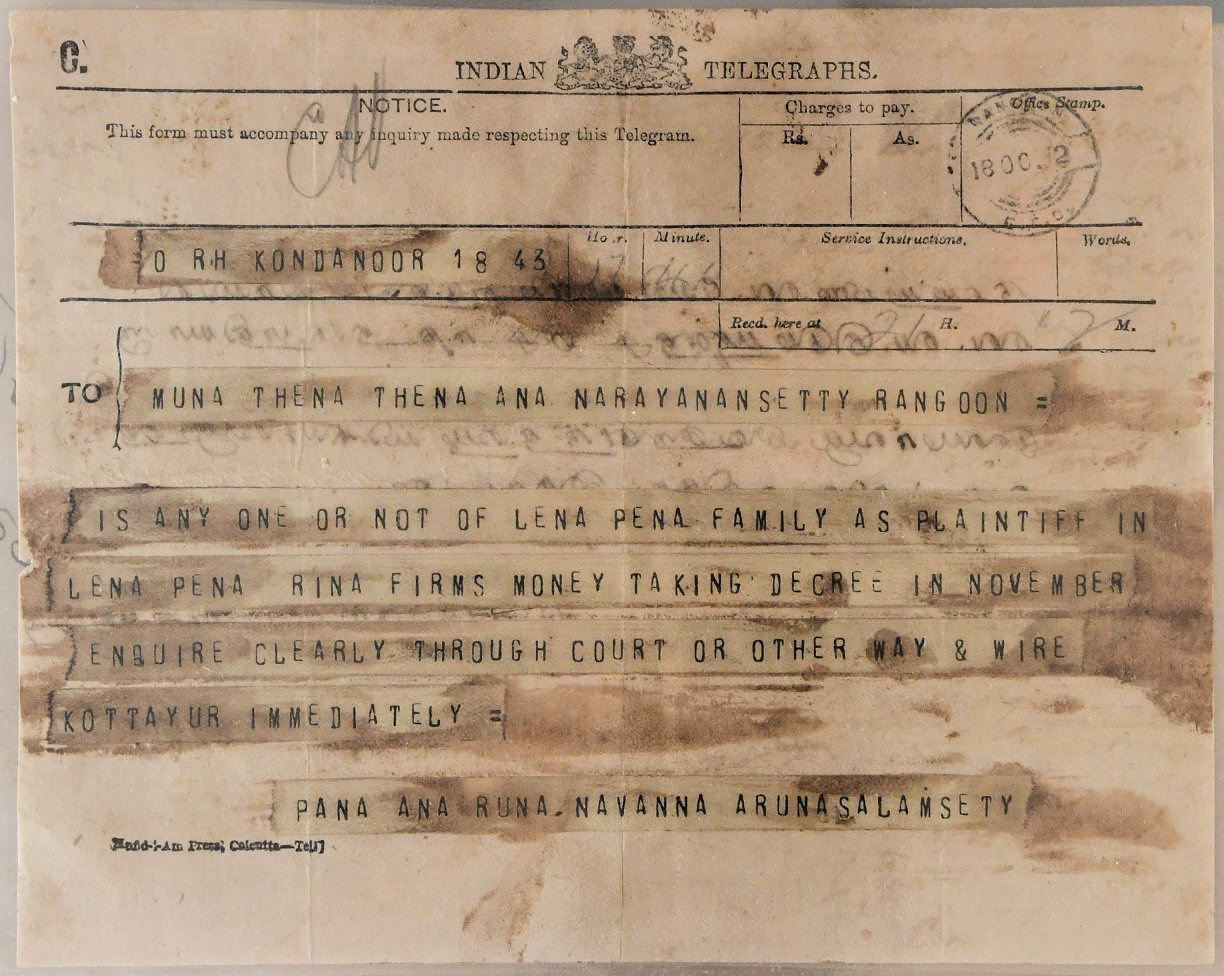 C.
INDIAN TELEGRAPHS.
NOTICE.
This form must accompany any inquiry made respecting this Telegram.
Charges to pay.
Rs. As.
Office Stamp.
18 OC 2
O RH KONDANOOR 18 43
Hour. Minute.
17
Service Instructions.
Words.
Recd. here at H. M.
TO
MUNA THENA THENA ANA NARAYANANSETTY RANGOON =
IS ANY ONE OR NOT OF LENA PENA FAMILY AS PLAINTIFF IN
LENA PENA RINA FIRMS MONEY TAKING DECREE IN NOVEMBER
ENQUIRE CLEARLY THROUGH COURT OR OTHER WAY & WIRE
KOTTAYUR IMMEDIATELY =
PANA ANA RUNA. NAVANNA ARUNASALAMSETY
Press, Calcutta—Tel]